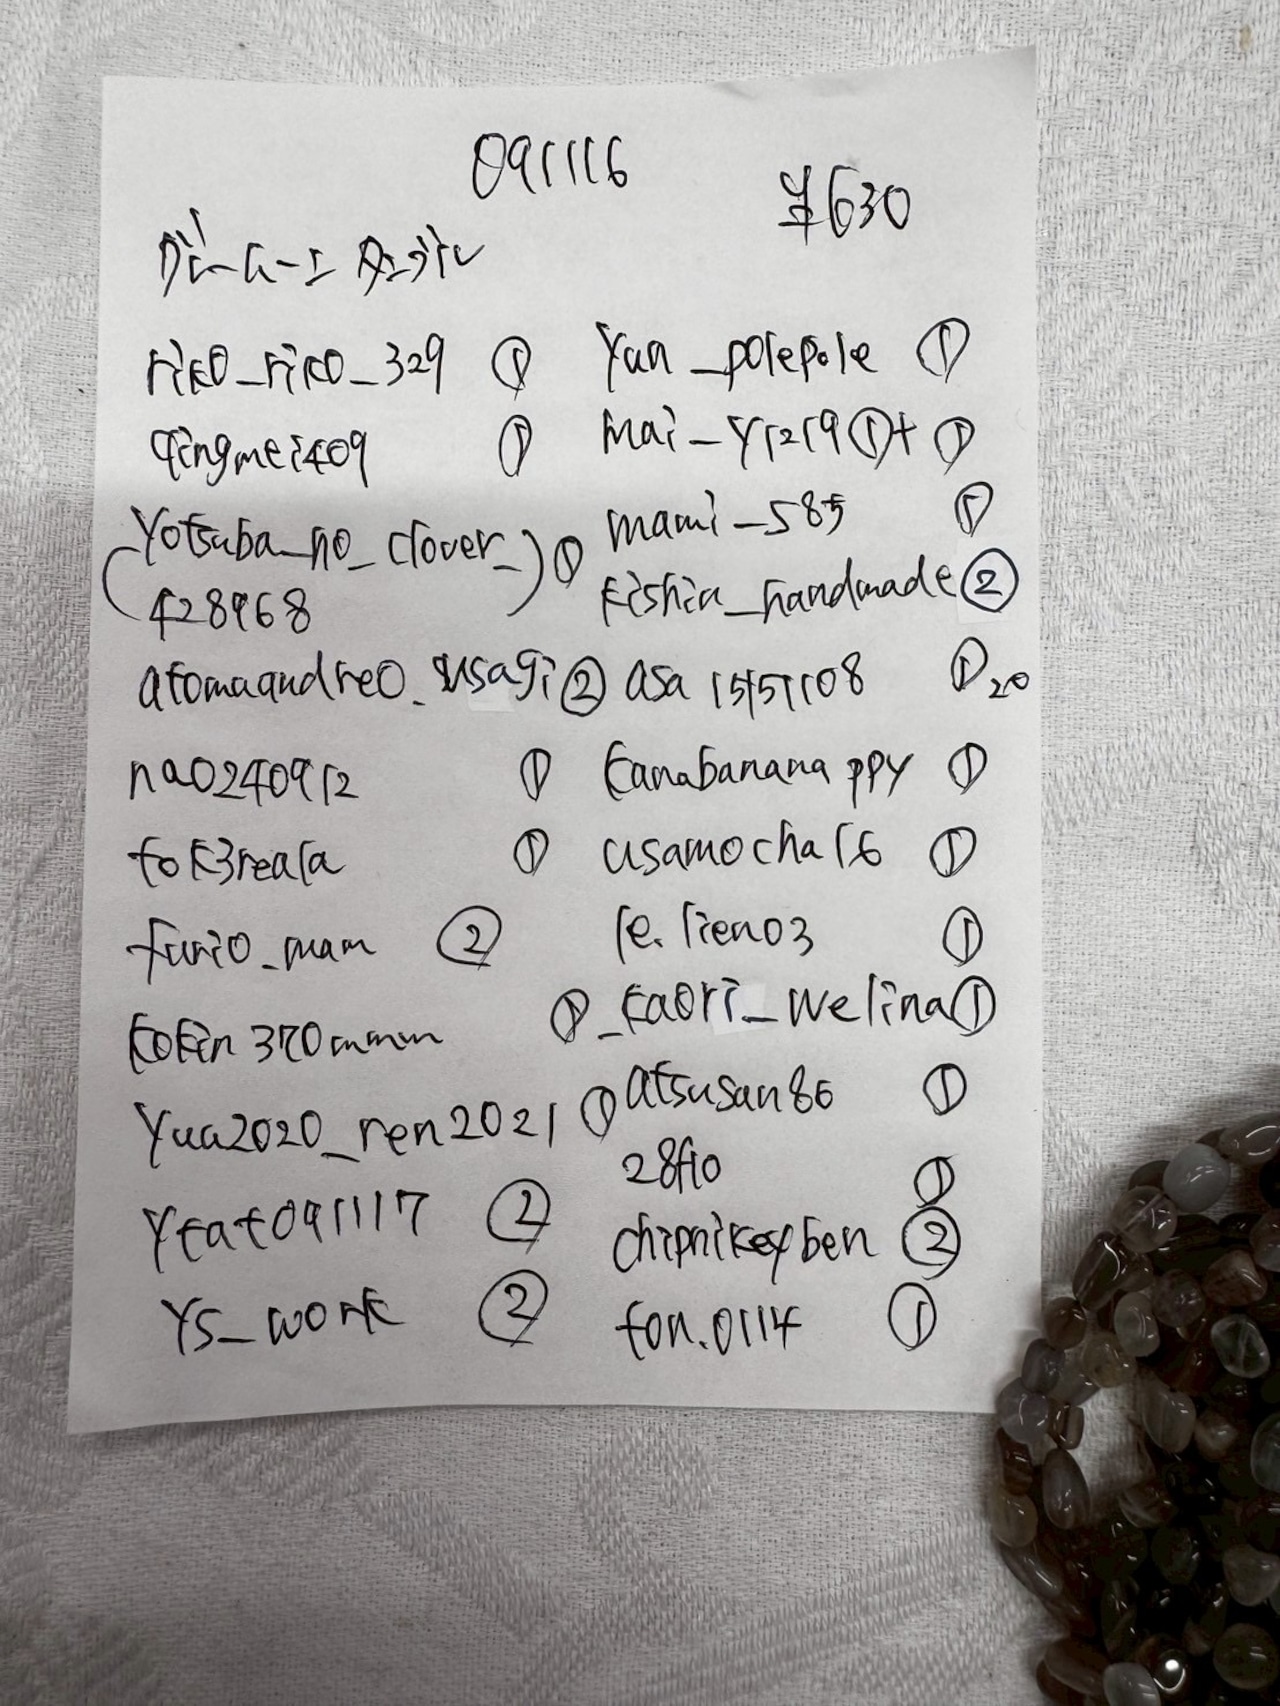 091116
¥630
riko_riko_329 ①
qingmei409 ①
(yotsuba_no_clover_
428968) ①
atomaandreo_usagi ②
nao240912 ①
tok3reala ①
furio_mam ②
kokin370mmm ①
yua2020_ren2021 ①
ytat091117 ②
ys_work ②
yun_polepole ①
mai_y1219 ①+①
mami_585 ①
kishia_handmade ②
asa15151108 ①20
kanabananappy ①
usamocha16 ①
le.lien03 ①
_kaori_welina ①
atsusan86 ①
28fio ①
chipnikeyben ②
fon.0114 ①